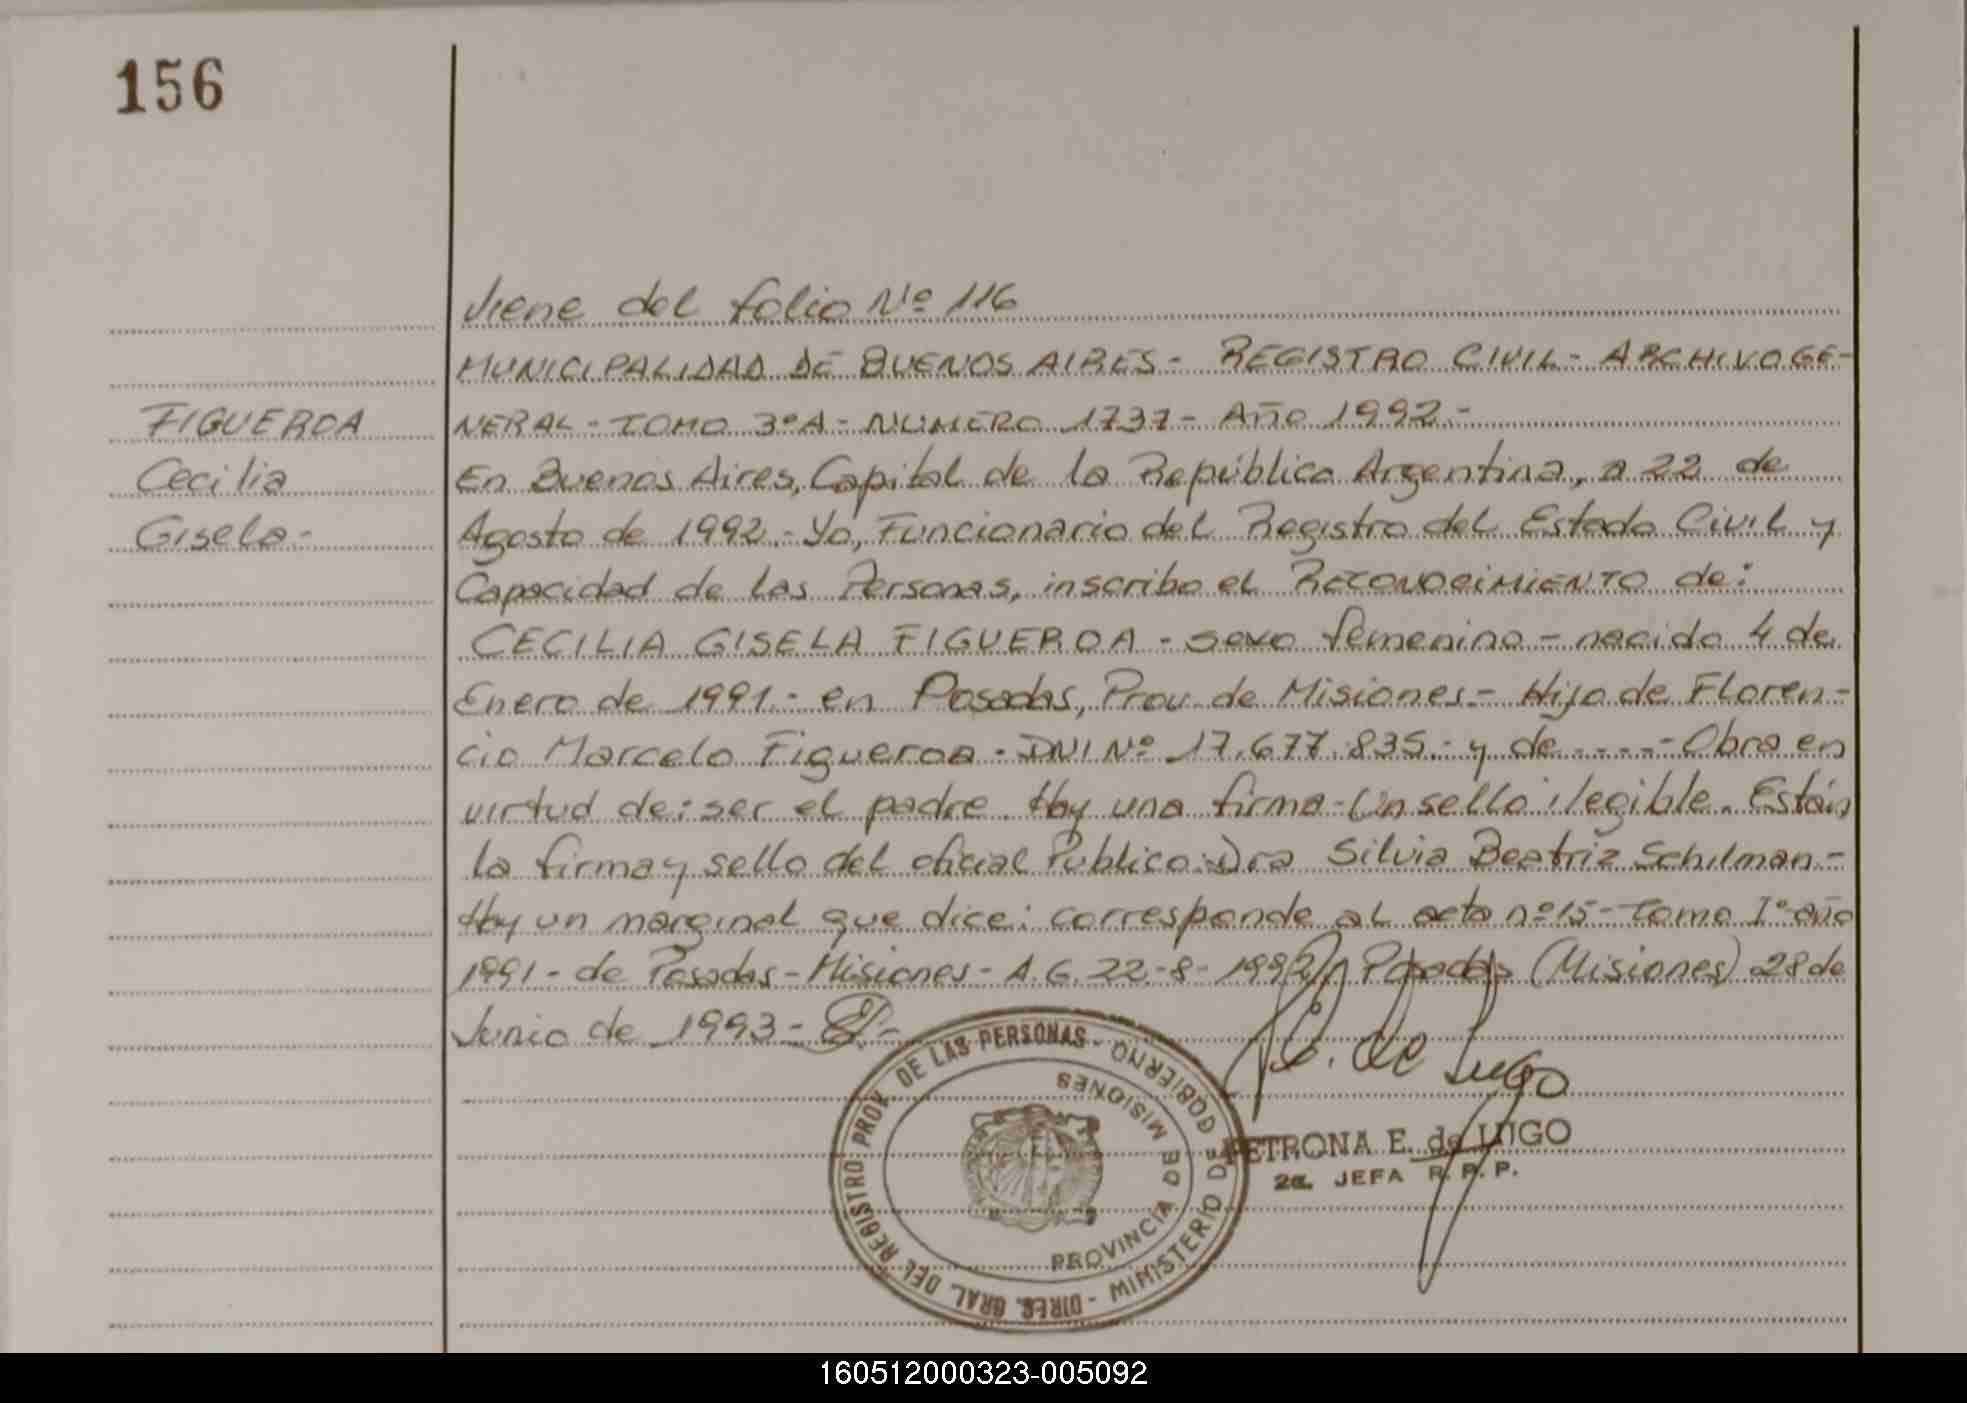 156
Viene del folio Nº 116
MUNICIPALIDAD DE BUENOS AIRES - REGISTRO CIVIL - ARCHIVO GE-
NERAL - TOMO 3º A - NUMERO 1737 - Año 1992.-
FIGUEROA
Cecilia
Gisela.-
En Buenos Aires, Capital de la República Argentina, a 22 de
Agosto de 1992.- Yo, Funcionario del Registro del Estado Civil y
Capacidad de las Personas, inscribo el RECONOCIMIENTO de:
CECILIA GISELA FIGUEROA - sexo femenino - nacido 4 de
Enero de 1991.- en Posadas, Prov. de Misiones.- Hijo de Floren-
cio Marcelo Figueroa - DNI Nº 17.677.835.- y de - - - - - Obra en
virtud de: ser el padre. Hay una firma - Un sello ilegible. Están
la firma y sello del oficial Publico: Dra Silvia Beatriz Schilman.-
Hay un marginal que dice: corresponde al acta nº 15 - Tomo Iº año
1991 - de Posadas - Misiones - A.G. 22-8-1992 Posadas (Misiones) 28 de
Junio de 1993 -
P.E. de Lugo
PETRONA E. de LUGO
2a. JEFA R.P.P.
DIREC. GRAL. DEL REGISTRO PROV. DE LAS PERSONAS - MINISTERIO DE GOBIERNO
PROVINCIA DE MISIONES
160512000323-005092